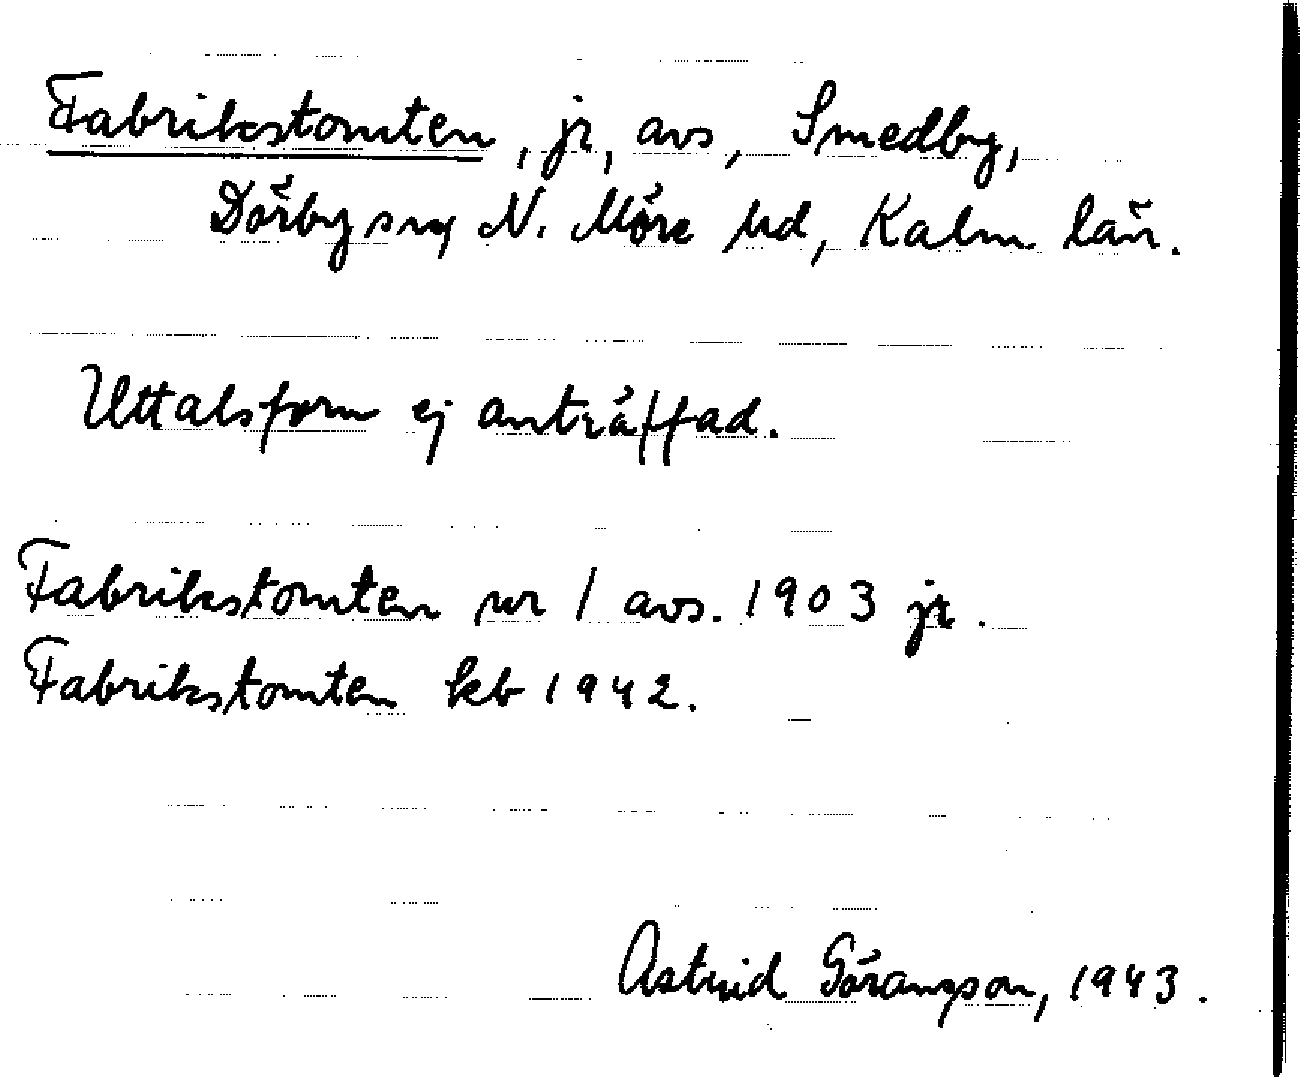 Fabrikstomten, jr, avs, Smedby,
Dörby sn, N. Möre hd, Kalm län.
Uttalsform ej anträffad.
Fabrikstomten nr 1 avs. 1903 jr.
Fabrikstomten kb 1942.
Astrid Göransson, 1943.